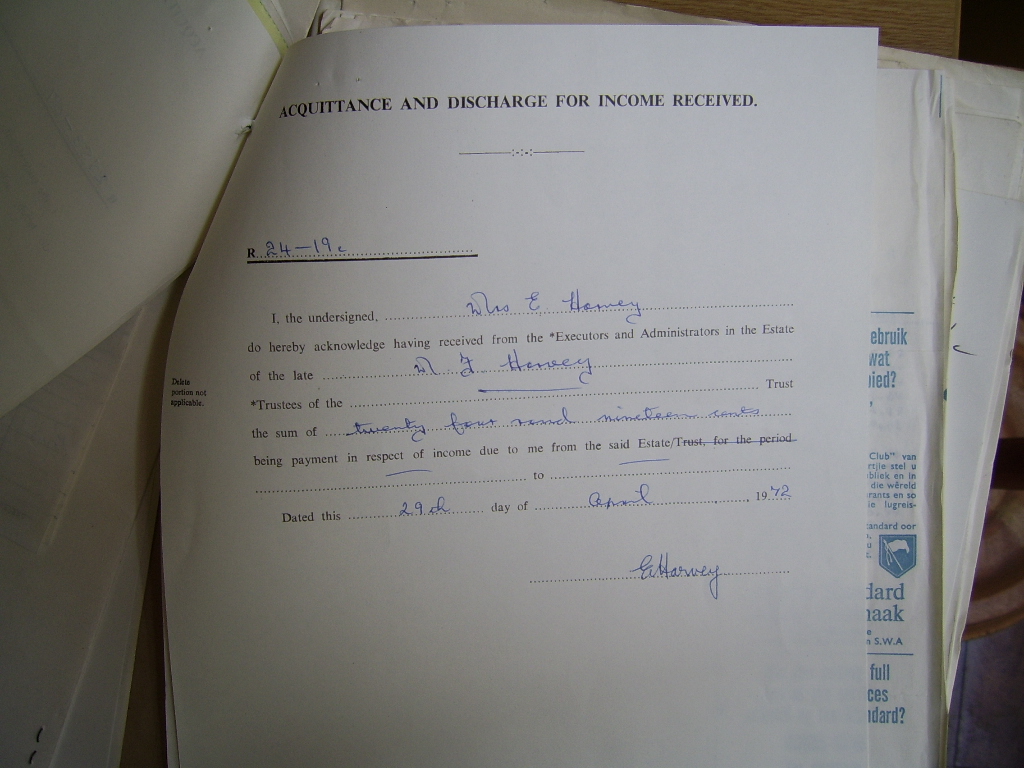 ACQUITTANCE AND DISCHARGE FOR INCOME RECEIVED.
R 24-19c
I, the undersigned, Mrs E Harvey
do hereby acknowledge having received from the *Executors and Administrators in the Estate
of the late Harvey
Delete
portion not
applicable.
*Trustees of the Trust
the sum of twenty four rand nineteen cents
being payment in respect of income due to me from the said Estate/Trust, for the period
to
Dated this 29th day of April 1972
EHarvey
ebruik
wat
ied?
Club" van
rtjie stel u
bliek en in
die wêreld
rants en so
ie lugreis-
andard oor
dard
naak
S.W.A
full
ces
ndard?